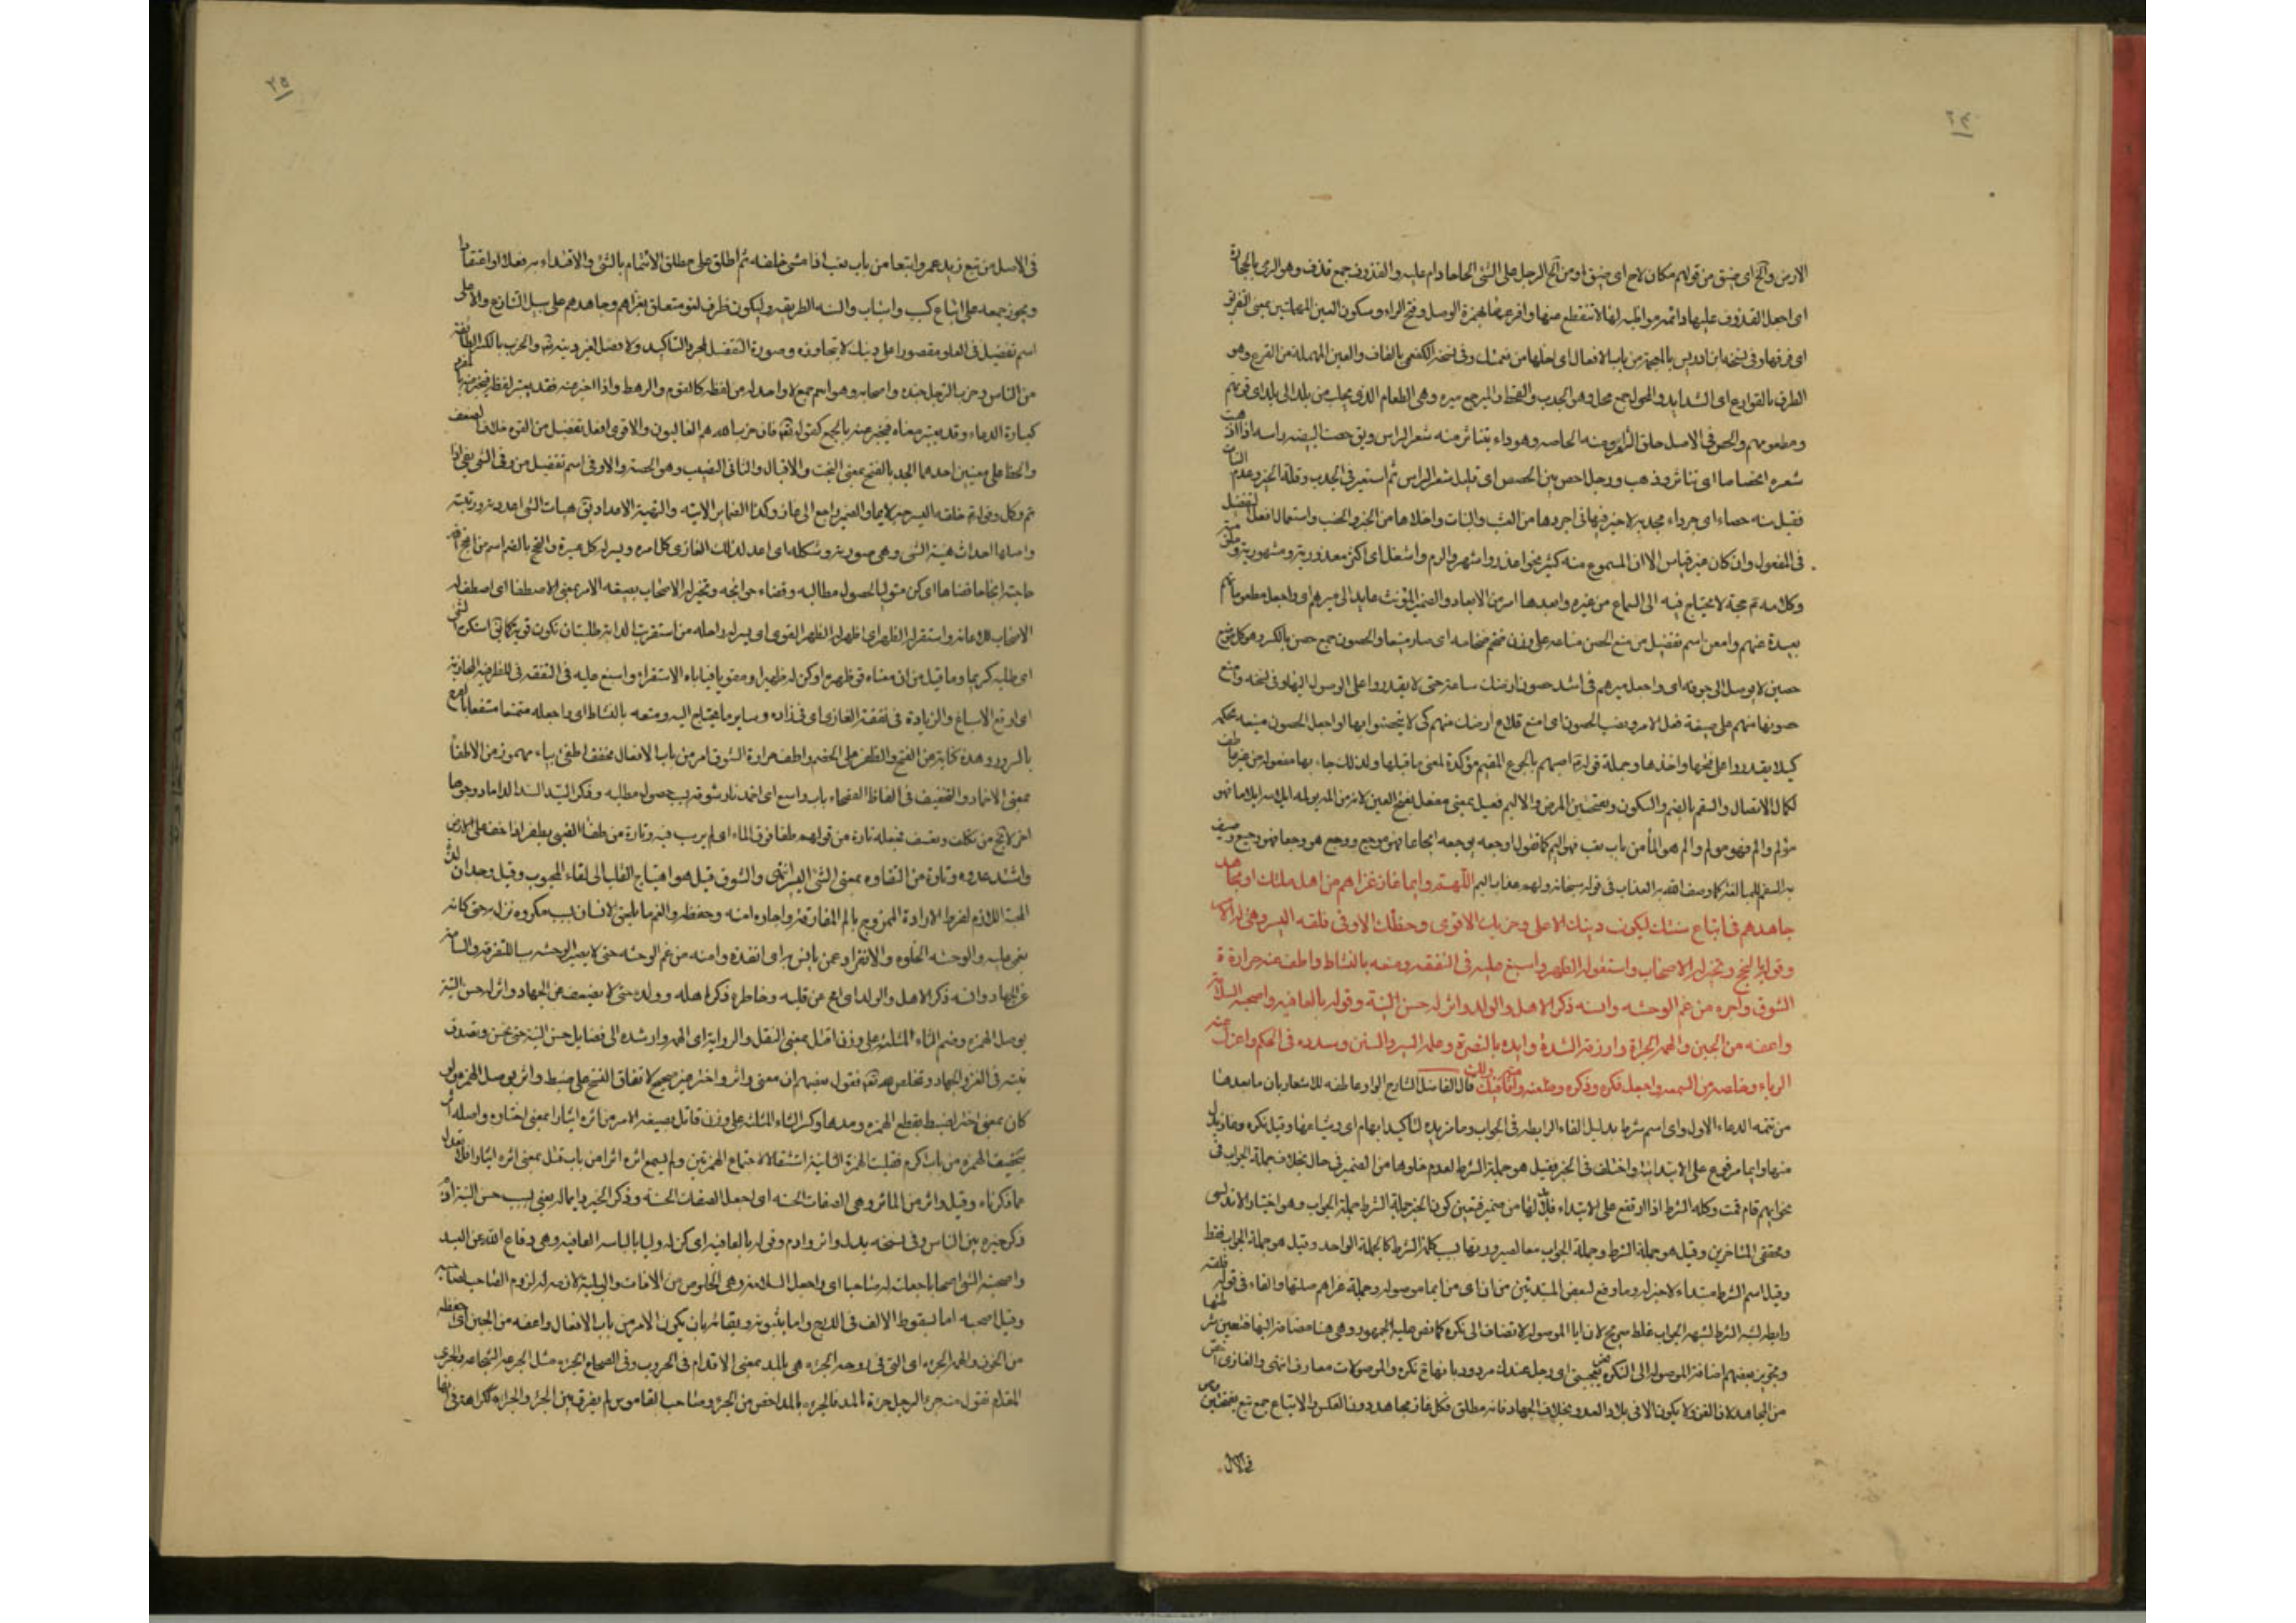 ٢٤
الارض والح اى ضيق من قولهم مكان لاح اى ضيق او من الح الرجل على الشئ الحاحا دام عليه والقذوف جمع قذف وهو الرمى بالحجارة
اى اجعل القذوف عليها دائمه مواظبه لها لا تنقطع عنها وافرعها بهمزة الوصل وفتح الراء وسكون العين المهملتين بمعنى التفريق
اى فرقها وفى نسخه ابن ادريس بالمعجمة من باب الافعال اى اخلها من وفى نسخة الكفعمى بالقاف والعين المهملة من القرع وهو
الطرق بالقوارع اى الشدايد والمحول جمع محل وهو الجدب والقحط والمير جمع ميره وهى الطعام الذى يجلب من بلد الى بلد اى قوتهم
ومطعومهم والحص فى الاصل حلق الشعر ومنه الحاصه وهو داء يتناثر منه شعر الراس ويق حصت البيضه راسه اذا اذهبت
شعره انحصاصا اى تناثر وذهب ورجل احص بين الحصص اى قليل شعر الراس ثم استعير فى الجدب وقلة الخير وعدم النبات
فقيل سنه حصاء اى جرداء مجدبه لاخير فيها اى اجردها من العشب والنبات واخلاها من الخير والخصب واستعمال افعل التفضيل
فى المفعول وان كان غير قياس الا ان المسموع منه كثير نحو اعذر واشهر والوم واشغل اى اكثر معذورية ومشهورية
وكلامه تم حجة لا يحتاج فيه الى السماع من غيره وابعدها امر من الابعاد والضمير المؤنث عايد الى ميرهم اى واجعل مطعوماتهم
بعيدة عنهم وامنع اسم تفضيل من منع الحصن مناعه على وزن ضخم ضخامه اى صار منيعا والحصون جمع حصن بالكسر وهو كل موضع
حصين لا يوصل الى جوفه اى واجعل ميرهم فى اشد حصون ارضك مناعة حتى لا يقدروا على الوصول اليها وفى نسخه وامنع
حصونها منهم على صيغة فعل الامر ونصب الحصون اى امنع قلاع ارضك منهم كى لا يتحصنوا بها او اجعل الحصون منيعه محكمه
كيلا يقدروا على فتحها واخذها وجملة قوله اصبهم بالجوع المقيم مؤكدة لمعنى ما قبلها ولذلك جاء بها مفصوله من غير عاطف
لكمال الاتصال والسقم بالضم والسكون وبفتحتين المرض والاليم فعيل بمعنى مفعل بفتح العين لانه من المه يولمه ايلاما فهو
مؤلم والم فهو مولم والم هو الما من باب تعب فهو اليم كما تقول اوجعه يوجعه ايجاعا فهو موجع ووجع هو وجعا فهو وجيع وصف
به السقم للمبالغة كما وصف الله به العذاب فى قوله سبحانه ولهم عذاب اليم اللهم وايما غاز غزاهم من اهل ملتك او مجاهد
جاهدهم من اتباع سنتك ليكون دينك الاعلى وحزبك الاقوى وحظك الاوفى فلقه اليسر وهيئ له الامر
وتوله بالنجح وتخير له الاصحاب واستقو له الظهر واسبغ عليه فى النفقه ومتعه بالنشاط واطف عنه حرارة
الشوق واجره من غم الوحشه وانسه ذكر الاهل والولد واثر له حسن النية وتوله بالعافيه واصحبه السلامة
واعفه من الجبن والهمه الجراة وارزقه الشدة وايده بالنصرة وعلمه السير والسنن وسدده فى الحكم واعزل عنه
الرياء وخلصه من السمعه واجعل فكره وذكره وظعنه واقامته فيك ولك قال الفاضل الشارح الواو عاطفه للاشعار بان ما بعدها
من تتمه الدعاء الاول واى اسم شرط بدليل الفاء الرابطه فى الجواب وما مزيده لتاكيد ابهام اى وشياعها وقيل نكره وغاز بدل
منها وايما مرفوع على الابتدائية واختلف فى الخبر فقيل هو جملة الشرط لعدم خلوها من الضمير فى حال بخلاف جملة الجواب فى
نحو ايهم قام قمت وكلمه الشرط اذا ارتفع على الابتداء فلا بد لها من ضمير فتعين كون الخبر جملة الشرط لا جملة الجواب وهو اختيار الاندلسى
ومحققى المتاخرين وقيل هو جملة الشرط وجملة الجواب معا لصيرورتها بسبب كلمة الشرط كالجملة الواحد وقيل هو جملة الجواب فقط
وقيل اسم الشرط مبتداء لا خبر له وما وقع لبعض المبتدئين من ان اى من ايما موصوله وجملة غزاهم صلتها والفاء فى قوله فلقه
رابطه لشبه الشرط لشبهه الجواب غلط صريح لان ايا الموصوله لا تضاف الى نكره كما نص عليه الجمهور وهى هنا مضافة اليها فتعين شرطيتها
وتجويز بعضهم اضافة الموصوله الى النكره نحو يعجبنى اى رجل عندك مردود بانها ح نكره والموصولات معارف انتهى والغازى اخص
من المجاهد لان الغزو لا يكون الا فى بلاد العدو بخلاف الجهاد فانه مطلق فكل غاز مجاهد دون العكس والاتباع جمع تبع بفتحتين وهو
فى الاصل
٢٥
فى الاصل من تبع زيد عمروا تبعا من باب تعب اذا مشى خلفه ثم اطلق على مطلق الائتمام بالشئ والاقتداء به فعلا او اعتقادا
ويجوز جمعه على اتباع كسبب واسباب والسنه الطريقه وليكون ظرف لغو متعلق بغزاهم وجاهدهم على سبيل التنازع والاعلى
اسم تفضيل فى العلو مقصورا على دينك لا يتجاوزه وصورة التفضيل لمجرد التاكيد ولا فضل لغير دينه تع والحزب بالكسر الطائفة
من الناس وحزب الرجل جنده واصحابه وهو اسم جمع لا واحد له من لفظه كالقوم والرهط واذا اخبر عنه فقد يعتبر لفظه فيخبر عنه بالمفرد
كعبارة الدعاء وقد يعتبر معناه فيخبر عنه بالجمع كقوله تعه فان حزب الله هم الغالبون والاقوى افعل تفضيل من القوه خلاف الضعف
والحظ على معنيين احدهما الجد بالفتح بمعنى البخت والاقبال والثانى النصيب وهو الحصة والاوفى اسم تفضيل من وفى الشئ يفى اذا
تم وكل وقوله تم فلقه اليسر والضمير راجع الى غاز وكذا الضماير الاتيه والتهيئة الاعداد يق هيات الشئ اعددته ورتبته
واصلها احداث هيئة الشئ وهى صورته وشكله اى اعد لذلك الغازى كل امره ويسر له كل عسيرة والنجح بالضم اسم من انجح الله
حاجته انجاحا قضاها اى كن متوليا لحصول مطالبه وقضاء حوائجه وتخير له الاصحاب بصيغه الامر بمعنى الاصطفا اى اصطف له
الاصحاب للاعانه واستقو له الظهر اى الظهر القوى اى يسر له راحله من استقريت الدابة طلبت ان تكون قويه كما يق استكرم الشئ
اى طلبه كريما وما قيل من ان معناه قو ظهره او كن له ظهيرا ومقويا فياباه الاستقراء واسبغ عليه فى النفقه فى للظرفية المجازية
اى اوقع الاسباغ والزيادة فى نفقة الغازى اى فى زاده وساير ما يحتاج اليه ومتعه بالنشاط اى واجعله متمتعا منتفعا
بالسرور وهذه كناية عن الفتح والظفر على الخصم واطف حرارة الشوق امر من باب الافعال مخفف اطفئ بياء مهموز من الاطفاء
بمعنى الاخماد والتخفيف فى الفاظ الفصحاء باب واسع اى اخمد نار شوقه بسبب حصول مطالبه وذكر السيد السند الداماد وجوها
اخر لا تخ من تكلف وتعسف تارة من قولهم طفا فوق الماء اى لم يرسب فيه وتارة من طفا الظبى يطفو اذا خف على الارض
واشتد عدوه والشوق قيل هو اهتياج القلب الى لقاء المحبوب وقيل وجدان لذة
المحبة اللازم لفرط الارادة الممزوج بالم المفارقة واجاره امنه وحفظه والغم ما يلحق الانسان بسبب مكروه نزل به حتى كانه
يغمى عليه والوحشه الخلوه والانفراد عمن يانس به اى انقذه وامنه من غم الوحشه حتى لا يصير الوحشه سببا للنفرة والسامة
عن الجهاد وانسه ذكر الاهل والولد اى امح عن قلبه وخاطره ذكر اهله وولده حتى لا يضعف عن الجهاد واثر له حسن النية
بوصل الهمزه وضم الثاء المثلثه على وزن اقتل بمعنى النقل والرواية اى الهمه وارشده الى فضايل حسن النية حتى يحسن ويصدق
نيته فى الغزو والجهاد وتخلص لله تعه فقول بعضهم ان معنى واثر واختر غير صحيح لاتفاق النسخ على ضبط واثر بوصل الهمزه ولو
كان بمعنى اختر لضبط بقطع الهمزه ومدها وكسر الثاء المثلثه على وزن قاتل بصيغه الامر من اثره ايثارا بمعنى اختاره واصله
بتخفيف الهمزه من باب اكرم فقلبت الهمزة الثانية استثقالا لاجتماع الهمزتين ولم يسمع اثره اثرا من باب قتل بمعنى اثره ايثارا
ما ذكرناه وقيل واثر من الماثر وهى الصفات الحسنه اى اجعل الصفات الحسنه وذكر الخير دايما له يعنى بسبب حسن النية
ذكر خيره بين الناس وفى نسخه بدل واثر وادم وتوله بالعافيه اى كن له وليا بالباسه العافيه وهى دفاع الله عن العبد
واصحبته الشئ اصحابا جعلته له صاحبا اى واجعل السلامه وهى الخلوص من الافات والبلية لازمه له لزوم الصاحب لصاحبه
وقيل اصحبه اما بسقوط الالف فى الدرج واما بثبوته وبقائه بان يكون الامر من باب الافعال واعفه من الجبن اى احفظه
من الخوف والهمه الجرءه اى التى فى روحه الجراءه هى بالمد بمعنى الاقدام فى الحروب وفى الصحاح الجرءه مثل الجرعه الشجاعه والجرى
المقدام تقول منه جرء الرجل جرءة بالمد فالجرءه بالمد اخص من الجرءه وصاحب القاموس لم يفرق بين الجرءه والجراءه